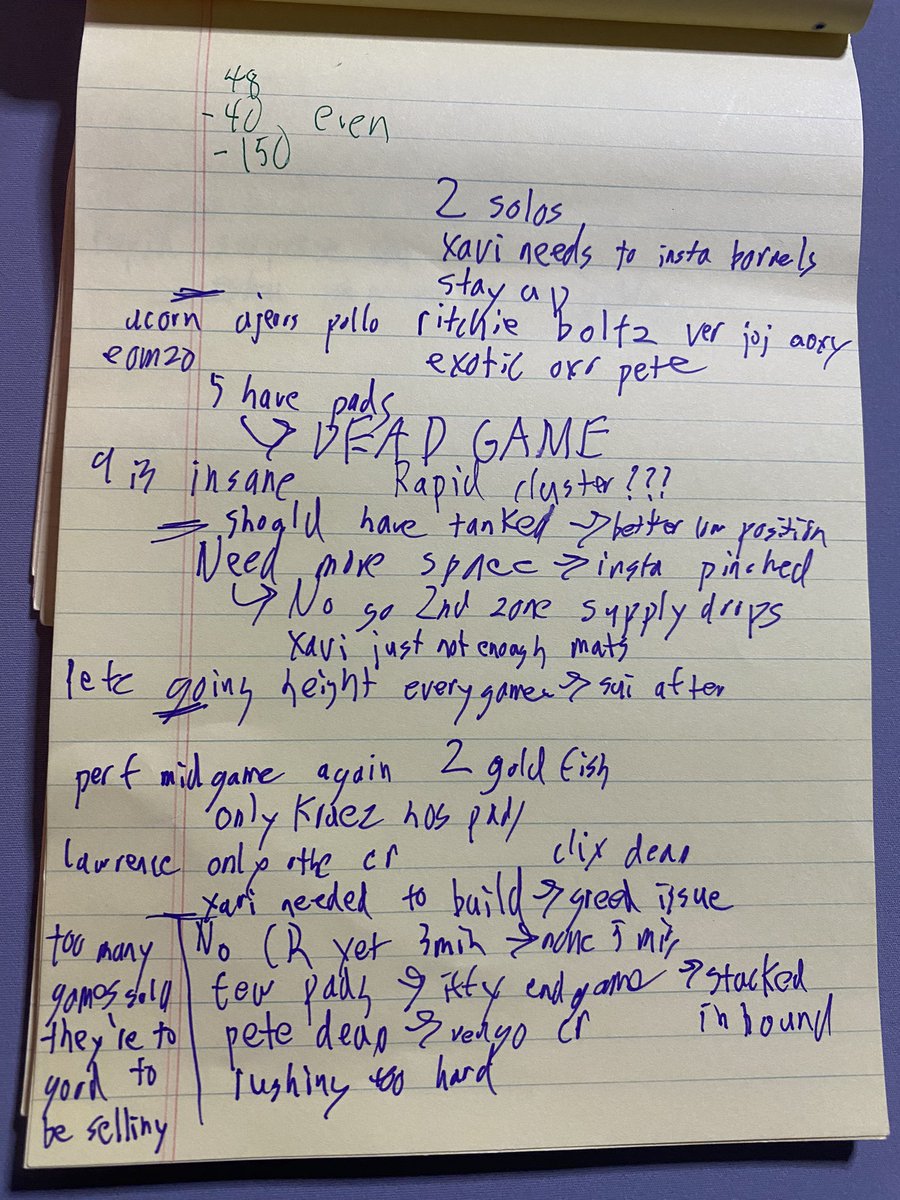 48
-40
-150
even
2 solos
xavi needs to insta barrels
stay up
acorn ajerss pollo ritchie boltz ver joj aoxy
eomzo exotic oxr pete
5 have pads
↳ DEAD GAME
9 in insane Rapid cluster???
should have tanked → better position
Need more space → insta pinched
↳ No go 2nd zone supply drops
xavi just not enough mats
letc going height every game → sui after
perf midgame again 2 gold fish
only Kraez has pads
lawrence only othe cr clix dead
xavi needed to build → greed issue
No CR yet 3min → none 5 min
few pads → iffy endgame → stacked
inbound
pete dead → cr
rushing too hard
too many
games sold
they're to
good to
be selling